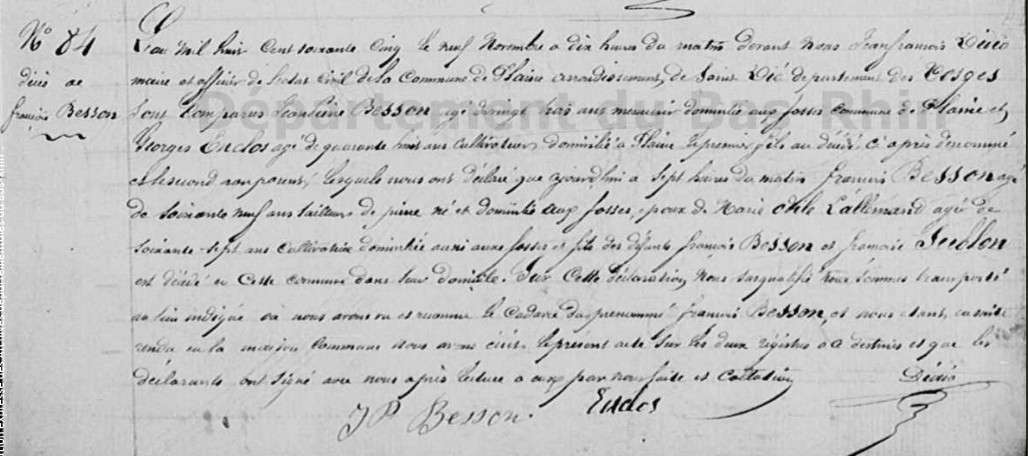 N° 84
décès de
françois Besson
L'an mil huit cent soixante cinq le neuf Novembre a dix heures du matin devant nous Jean françois Dédio
maire et officier de l'état civil de la Commune de Plaine arrondissement de Saint Dié departement des Vosges
sont Comparus Besson agé de vingt trois ans menuisier domicilié aux fosses commune de Plaine et
Georges Enclos agé de quarante huit ans Cultivateur domicilié a Plaine le premier fils au décédé ci après denommé
et le second non parent, lesquels nous ont déclaré que aujourd'hui a sept heures du matin françois Besson agé
de soixante neuf ans tailleur de pierre né et domicilié aux fosses, epoux de Marie Lallemand agée de
soixante-sept ans Cultivatrice domiciliée aussi aux fosses et fils des défunts françois Besson et françoise
est décédé en Cette commune dans leur domicile. Sur Cette déclaration, Nous susqualifié nous sommes transporté
au lieu indiqué où nous avons vu et reconnu le Cadavre du prenommé françois Besson, et nous étant, ensuite
rendu en la maison Commune nous avons écrit le présent acte sur les deux régistres à ce destinés et que les
déclarants ont signé avec nous après lecture a eux par nous faite et Collation
Dédio
JP Besson Enclos
Département du Bas-Rhin